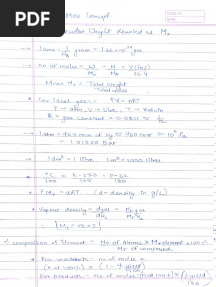 PDF
Mole Concept.
Molecular Weight denoted as Mw
→ 1amu = 1/NA gram = 1.66×10⁻²⁴ gm
→ no of moles = W/Mw = N/NA = V(lit)/22.4
Mean Mw = Total Weight / Total moles
* For Ideal gas:- PV = nRT
P → atm, V → litre, T → Kelvin
R = gas constant = 0.0821
→ 1atm = 760 mm of Hg
1.01325 Bar
→ 1dm³ = 1 litre 1m³ = 1000 litres
* °C/100 = K-273/100 = F-32/180
* PMw = dRT (d = density in g/L)
* Vapour density =
{Mw = VD × 2}
% composition of Element = No of Atoms × Mw element × 100
Mw of compound
* For reactants: no of moles =
For products:- no of moles